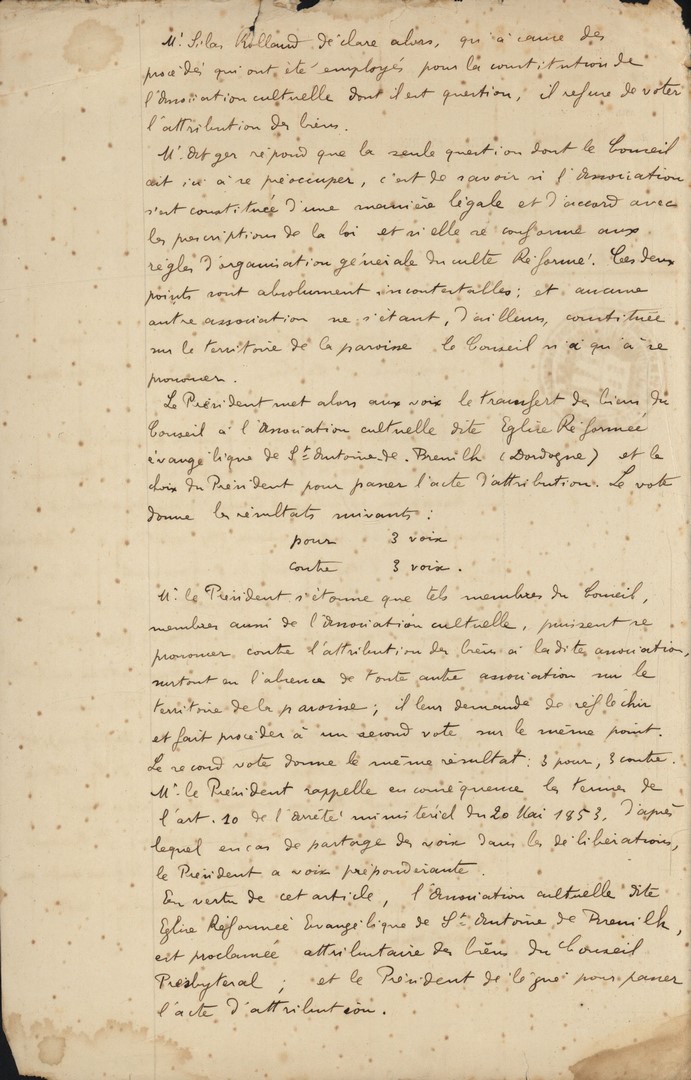 Mr. Silas Rolland déclare alors, qu'à cause des
procédés qui ont été employés pour la constitution de
l'Association cultuelle dont il est question, il refuse de voter
l'attribution des biens.
Mr. répond que la seule question dont le Conseil
ait ici à se préoccuper, c'est de savoir si l'Association
s'est constituée d'une manière légale et d'accord avec
les prescriptions de la loi et si elle se conforme aux
règles d'organisation générale du culte Réformé. Ces deux
points sont absolument incontestables; et aucune
autre association ne s'étant, d'ailleurs, constituée
sur le territoire de la paroisse le Conseil n'a qu'à se
prononcer.
Le Président met alors aux voix le transfert des biens du
Conseil à l'Association cultuelle dite Eglise Réformée
évangélique de St Antoine-de-Breuilh (Dordogne) et le
choix du Président pour passer l'acte d'attribution. Le vote
donne les résultats suivants:
pour 3 voix
contre 3 voix.
Mr. le Président s'étonne que tels membres du Conseil,
membres aussi de l'Association cultuelle, puissent se
prononcer contre l'attribution des biens à la dite association,
surtout en l'absence de toute autre association sur le
territoire de la paroisse; il leur demande de réfléchir
et fait procéder à un second vote sur le même point.
Le second vote donne le même résultat: 3 pour, 3 contre.
Mr. le Président rappelle en conséquence les termes de
l'art. 10 de l'arrêté ministériel du 20 Mai 1853, d'après
lequel en cas de partage des voix dans les délibérations,
le Président a voix prépondérante.
En vertu de cet article, l'Association cultuelle dite
Eglise Réformée Evangélique de St Antoine de Breuilh,
est proclamée attributaire des biens du Conseil
Presbyteral; et le Président délégué pour passer
l'acte d'attribution.